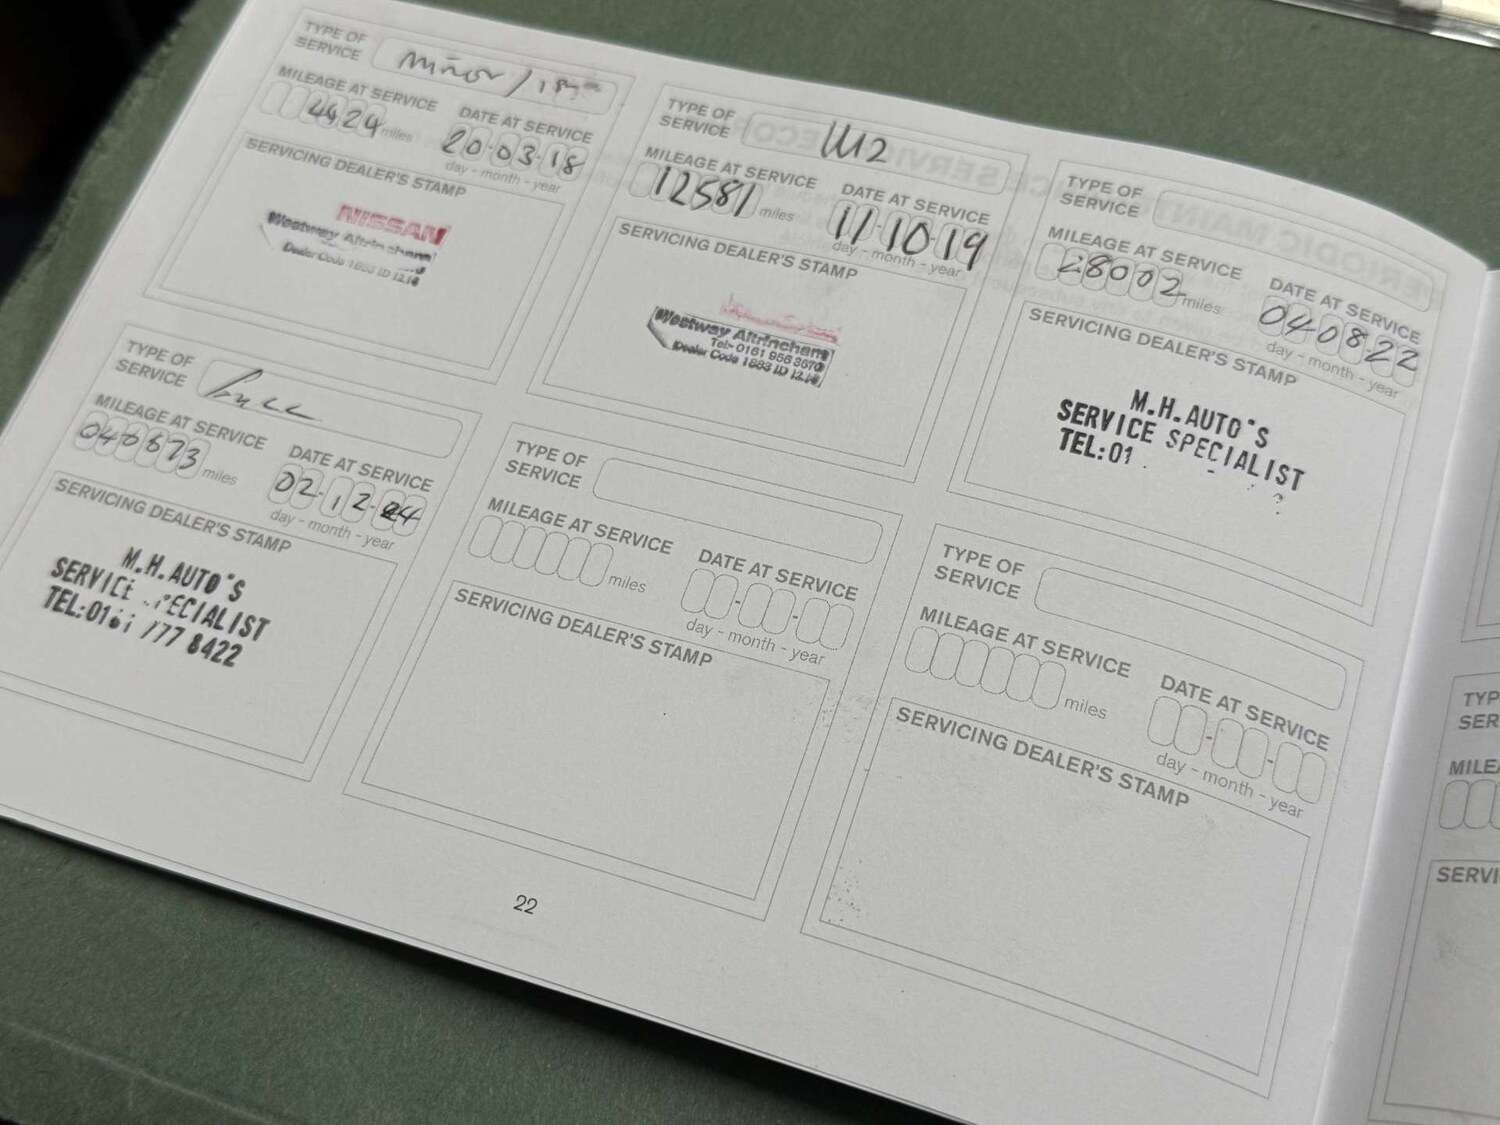 TYPE OF
SERVICE
minor /
MILEAGE AT SERVICE
4424 miles
DATE AT SERVICE
20-03-18
day - month - year
SERVICING DEALER'S STAMP
NISSAN
Westway Altrincham
Dealer Code 1883 ID 12.16
TYPE OF
SERVICE
MILEAGE AT SERVICE
12581 miles
DATE AT SERVICE
11-10-19
day - month - year
SERVICING DEALER'S STAMP
Westway Altrincham
Tel:- 0161 956 3670
Dealer Code 1883 ID 12.16
TYPE OF
SERVICE
MILEAGE AT SERVICE
28002 miles
DATE AT SERVICE
04-08-22
day - month - year
SERVICING DEALER'S STAMP
M.H.AUTO'S
SERVICE SPECIALIST
TEL:01
TYPE OF
SERVICE
Full
MILEAGE AT SERVICE
miles
DATE AT SERVICE
02-12-24
day - month - year
SERVICING DEALER'S STAMP
M.H.AUTO'S
SERVICE SPECIALIST
TEL:0161 777 8422
TYPE OF
SERVICE
MILEAGE AT SERVICE
miles
DATE AT SERVICE
day - month - year
SERVICING DEALER'S STAMP
TYPE OF
SERVICE
MILEAGE AT SERVICE
miles
DATE AT SERVICE
day - month - year
SERVICING DEALER'S STAMP
22